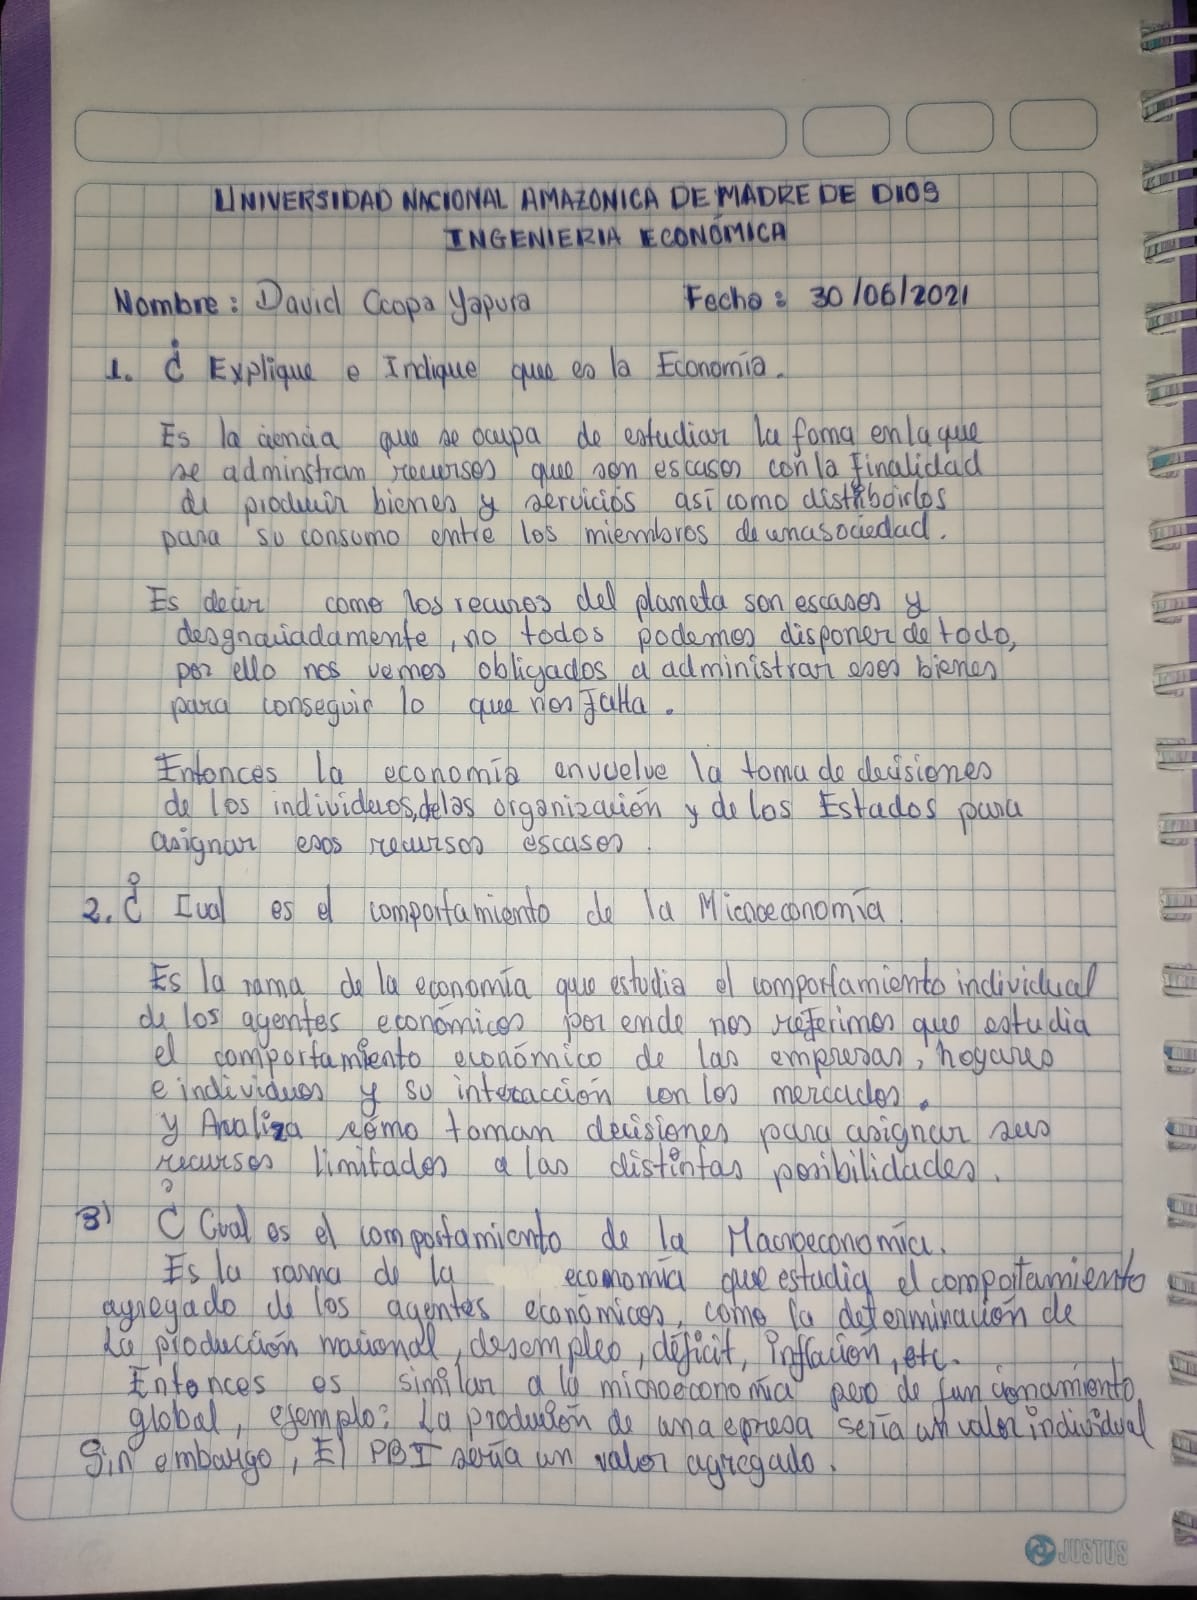 UNIVERSIDAD NACIONAL AMAZONICA DE MADRE DE DIOS
INGENIERIA ECONÓMICA
Nombre: David Ccopa Yapura Fecha: 30/06/2021
1. ¿ Explique e Indique que es la Economía.
Es la ciencia que se ocupa de estudiar la foma en la que
se adminstram recursos que son escasos con la finalidad
de producir bienes y servicios así como distribuirlos
para su consumo entre los miembros de una sociedad.
Es decir como los recursos del planeta son escasos y
desgraciadamente, no todos podemos disponer de todo,
por ello nos vemos obligados a administrar esos bienes
para conseguir lo que nos falta.
Entonces la economía envuelve la toma de decisiones
de los individuos, de las organización y de los Estados para
asignar esos recursos escasos.
2. ¿ Cual es el comportamiento de la Microeconomía.
Es la rama de la economía que estudia el comportamiento individual
de los agentes económicos por ende nos referimos que estudia
el comportamiento económico de las empresas, hogares
e individuos y su interacción con los mercados.
y Analiza cómo toman decisiones para asignar sus
recursos limitados a las distintas posibilidades.
3) ¿ Cual es el comportamiento de la Macroeconomía.
Es la rama de la economía que estudia el comportamiento
agregado de los agentes económicos, como la determinación de
La producción nacional, desempleo, déficit, inflación, etc.
Entonces es similar a la microeconomía pero de funcionamiento
global, ejemplo: La produción de una epresa seria un valor individual
Sin embargo, El PBI sería un valor agregado.
JUSTUS